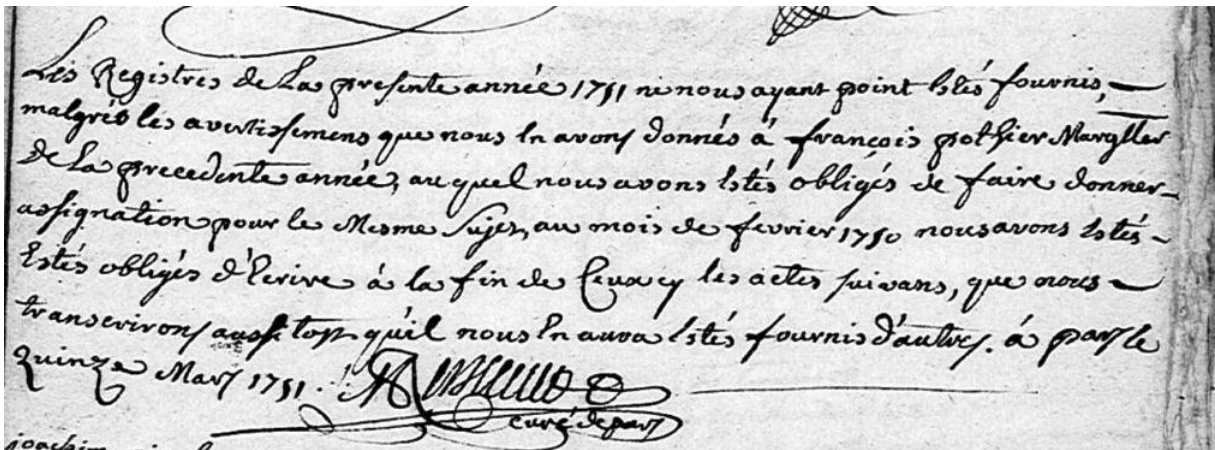 Les Registres de La presente année 1751 ne nous ayant point Estés fournis,
malgrés les avertissemens que nous En avons donnés à françois pothier Marglier
de La precedente année, auquel nous avons Estés obligés de faire donner
assignation pour le Mesme Sujet, au mois de fevrier 1750 nous avons Estés
Estés obligés d'Ecrire à la fin de Ceux cy les actes suivans, que nous
transcrirons aussi tost qu'il nous En aura Estés fournis d'autres. à pars le
Quinze Mars 1751.
curé de pars
joachim